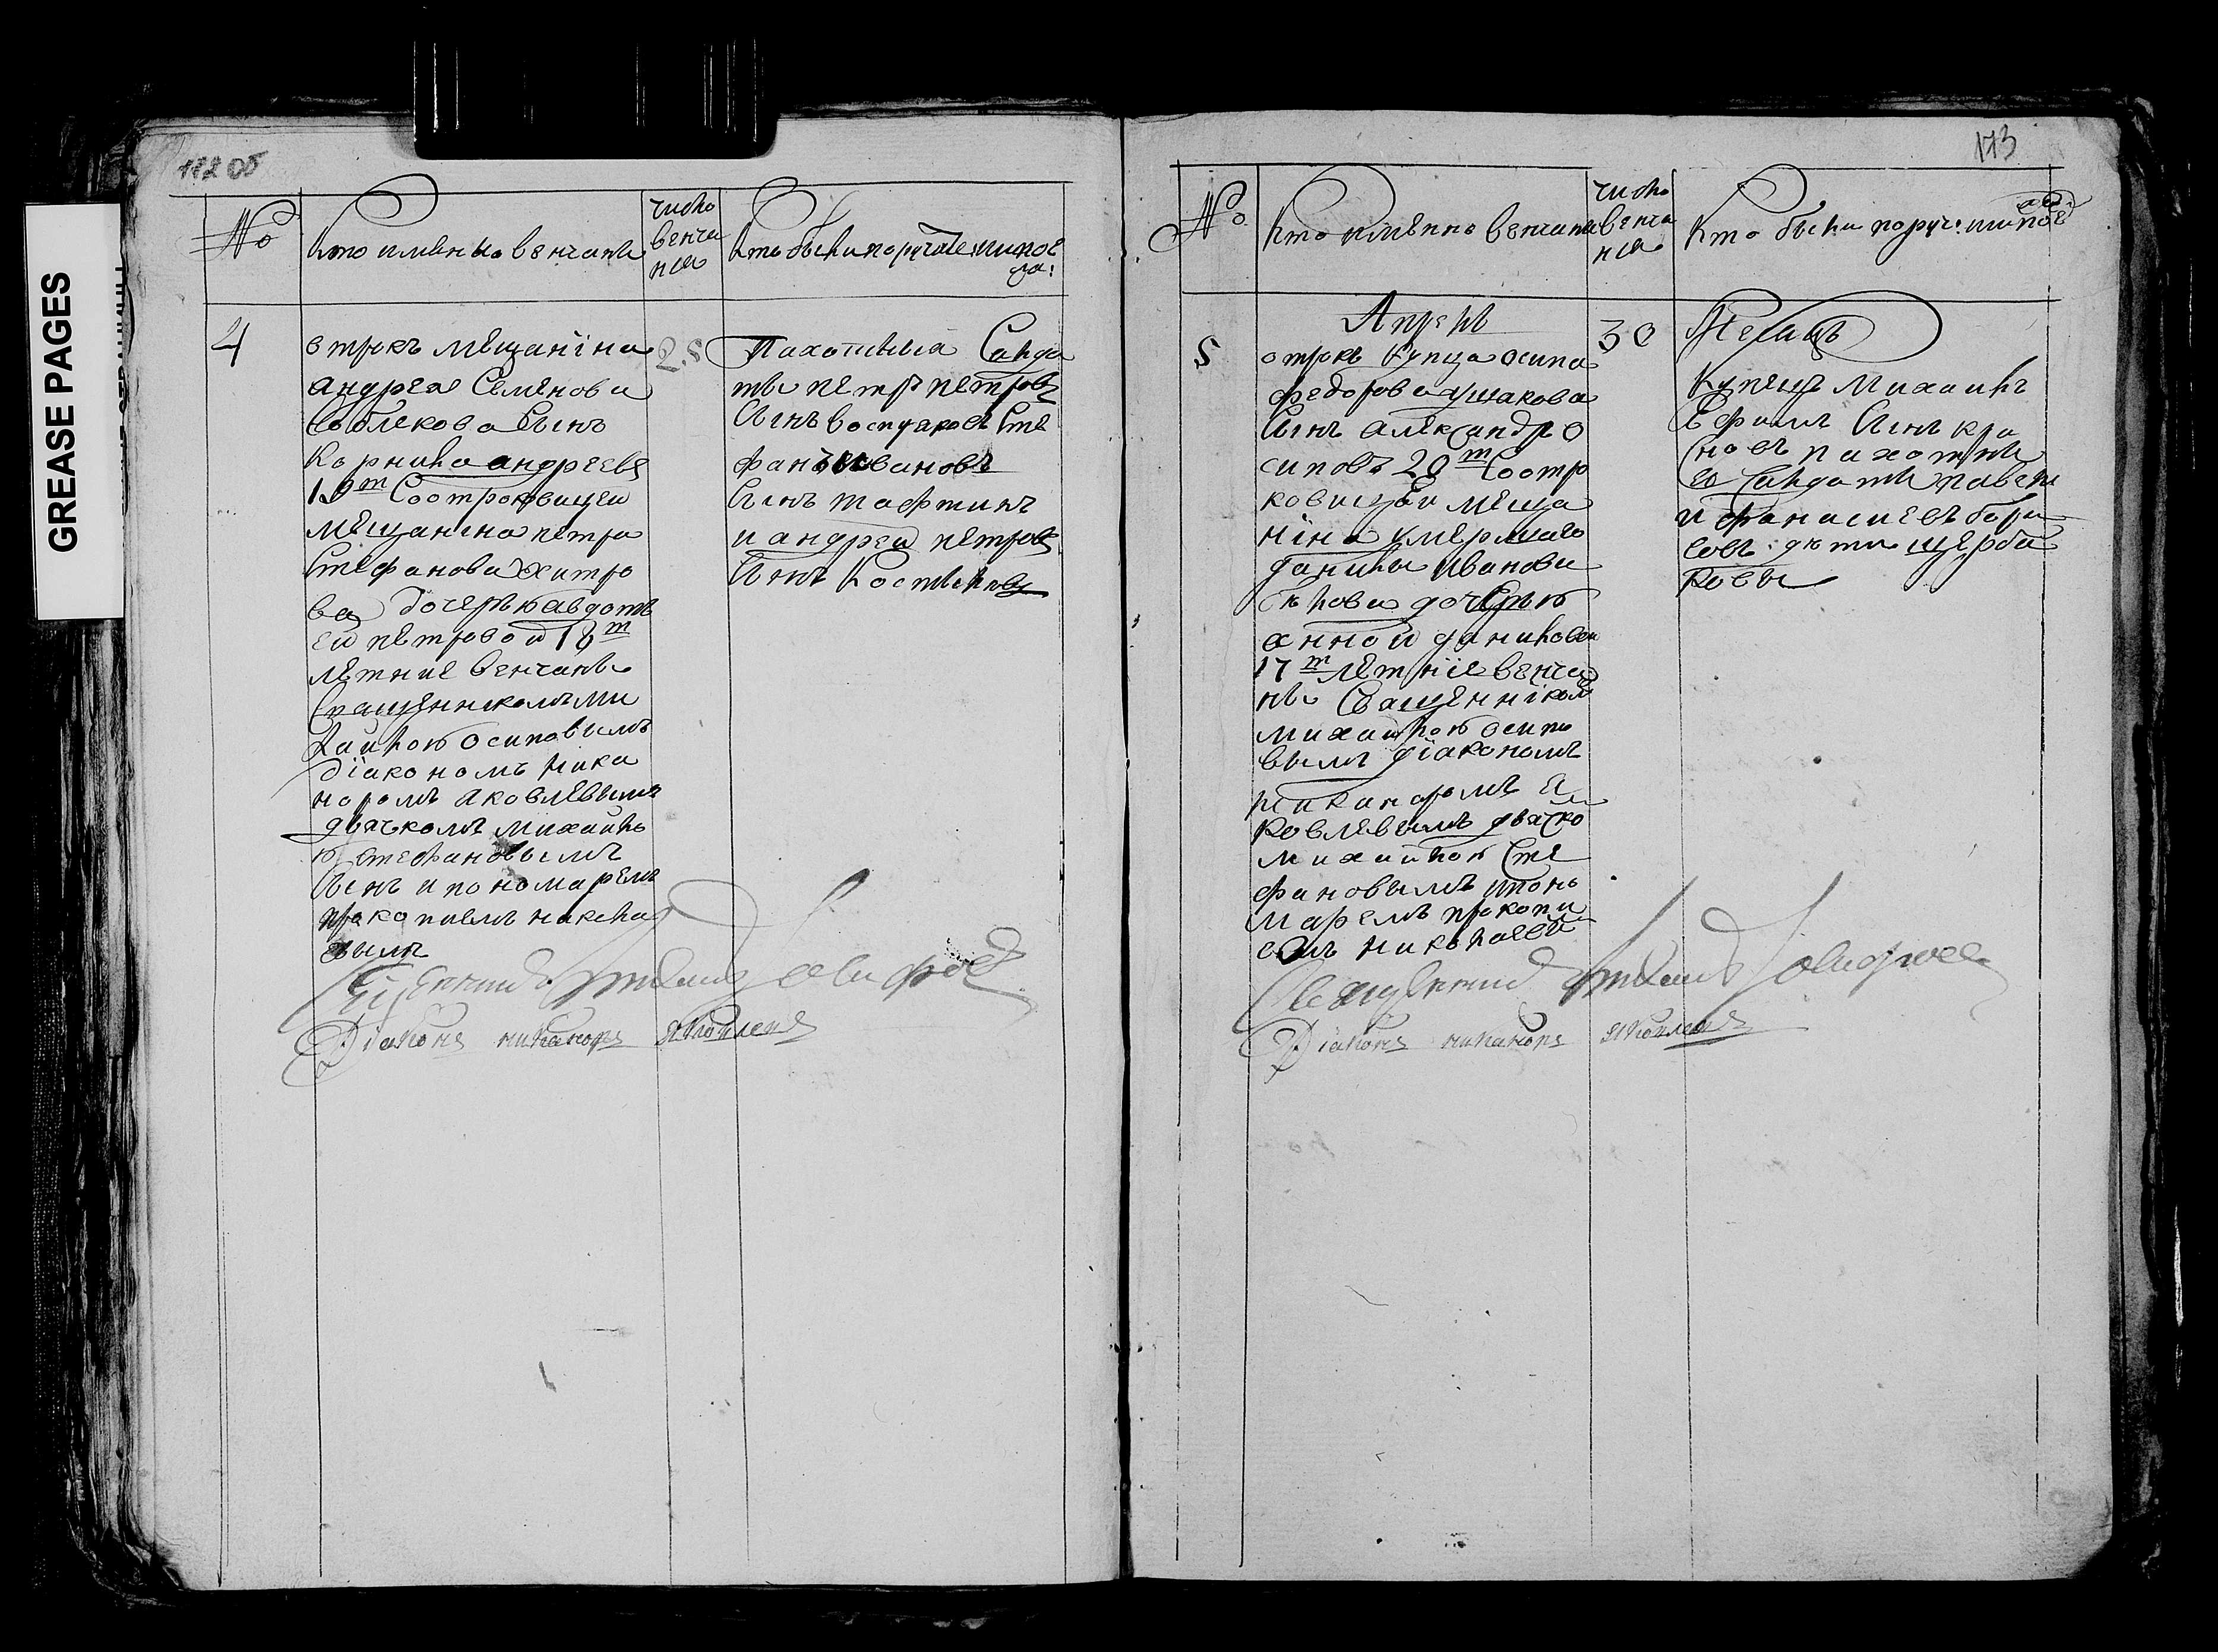 GREASE PAGES
172 об
№
кто имянно венчани
число
венча
ния
кто были поручатели и поез
жа:
4
отрокъ мещанина
андрея Семенова
Соблекова Сынъ
Корнила андреевъ
19т Соотроковицеи
мещанина петра
Стефанова хитро
ва дочерью авдоть
еи петровои 18т
летние венчаны
Сващенникомъ ми
хаилою осиповымъ
діакономъ Ника
норомъ яковлевымъ
дьячкомъ михаило
ю Стефановымъ
и пономаремъ
прокопиемъ никола
евымъ
28
Пахотныя Салда
ты петръ петровъ
Сынъ Сте
фанъ Ивановъ
Сынъ тафтинъ
и андреи петровъ
Сынъ Костылевъ
Священникъ михаилъ
Діаконъ никаноръ яковлевъ
173
№
кто имянно венчани
число
венча
ния
кто были поруч: или поез
5
Апрель
отрокъ Купца осипа
федорова ушакова
Сынъ александръ о
сиповъ 20т Соотро
ковицеи меща
нина умершаго
данилы иванова
белова дочерью
анной даниловои
17т летніе венча
ны Сващенникомъ
михаилою осипо
вымъ діакономъ
никаноромъ я
ковлевымъ дьячко
михаилою Сте
фановымъ и поно
маремъ прокопи
емъ николаевы
30
Купецъ Михаилъ
Ефимъ Сынъ кра
сновъ пахотны
е Салдаты павелъ
и афанасиевъ бори
совъ: дети щерба
ковы
Священникъ михаилъ
Діаконъ никаноръ яковлевъ